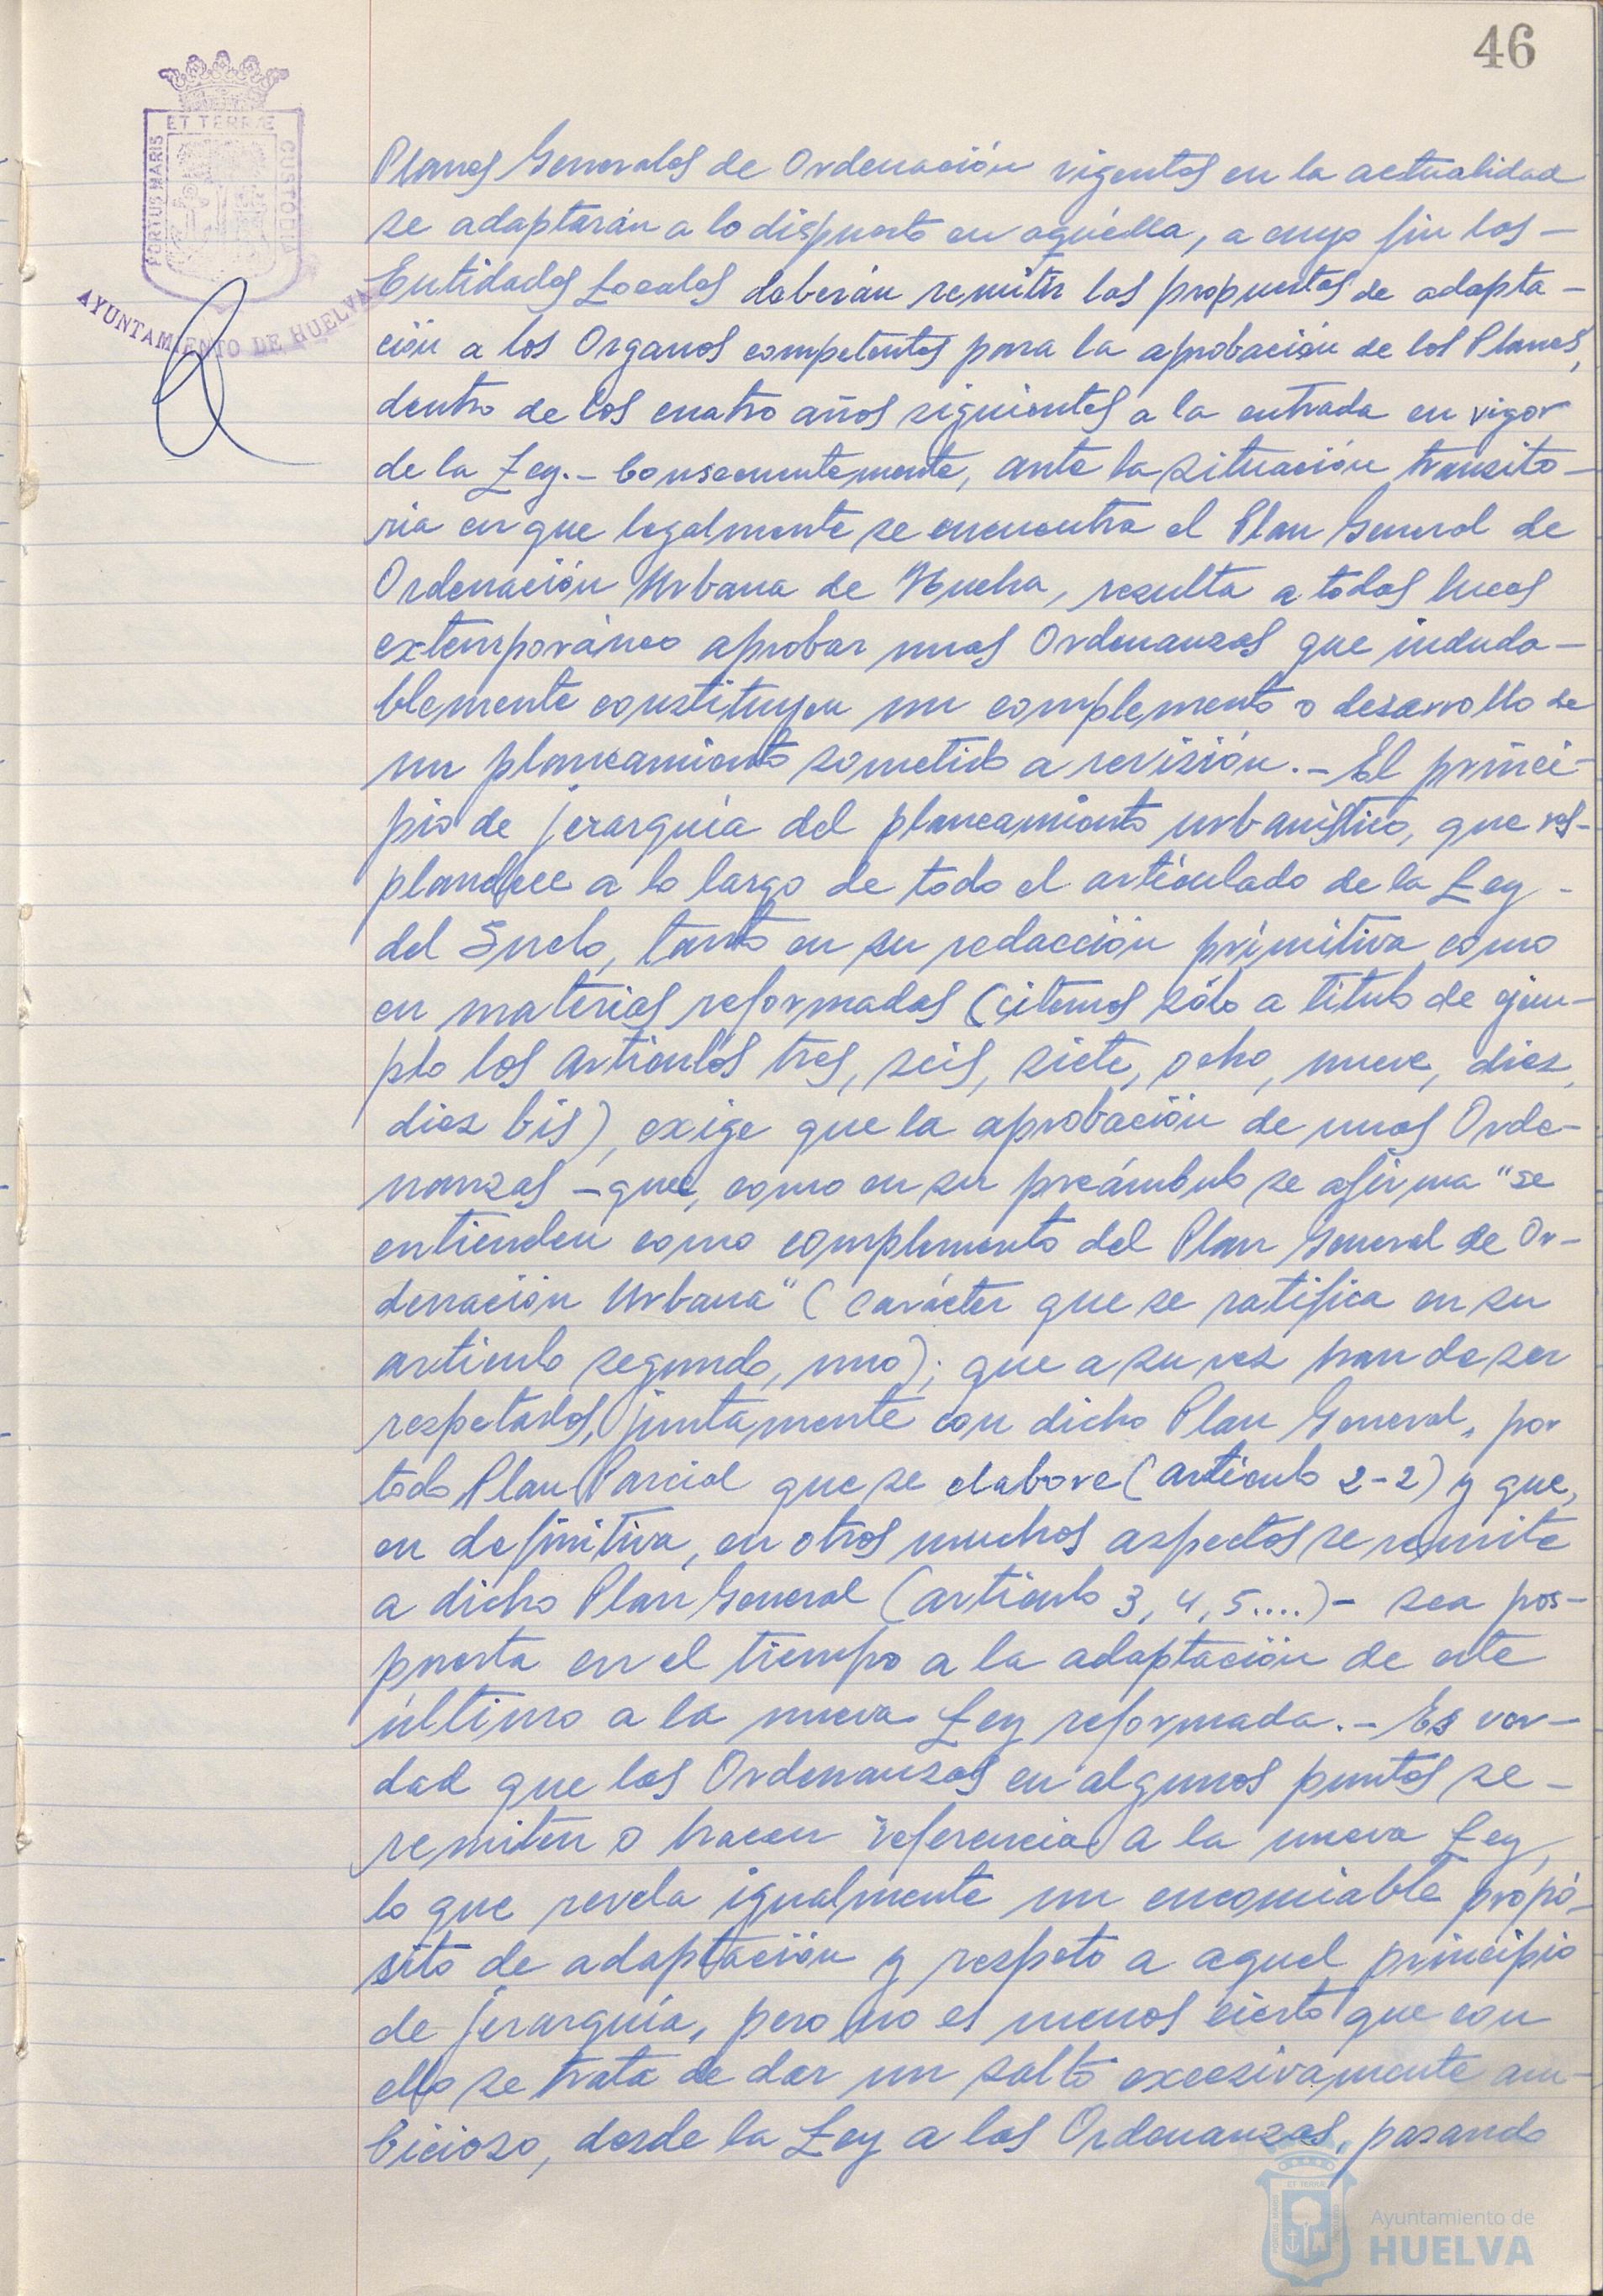 46
ET TERRÆ
PORTUS MARIS
CUSTODIA
AYUNTAMIENTO DE HUELVA
Planes Generales de Ordenación vigentes en la actualidad
se adaptarán a lo dispuesto en aquélla, a cuyo fin las -
Entidades Locales deberán remitir las propuestas de adapta-
ción a los Organos competentes para la aprobación de los Planes,
dentro de los cuatro años siguientes a la entrada en vigor
de la Ley.- Consecuentemente, ante la situación transito-
ria en que legalmente se encuentra el Plan General de
Ordenación Urbana de Huelva, resulta a todas luces
extemporáneo aprobar unas Ordenanzas que induda-
blemente constituyen un complemento o desarrollo de
un planeamiento sometido a revisión.- El princi-
pio de jerarquía del planeamiento urbanístico, que res-
plandece a lo largo de todo el articulado de la Ley -
del Suelo, tanto en su redacción primitiva como
en materias reformadas (citemos sólo a titulo de ejem-
plo los articulos tres, seis, siete, ocho, nueve, diez,
diez bis), exige que la aprobación de unas Orde-
nanzas - que, como en su preámbulo se afirma "se
entienden como complemento del Plan General de Or-
denación Urbana" (carácter que se ratifica en su
articulo segundo, uno); que a su vez han de ser
respetados, juntamente con dicho Plan General, por
todo Plan Parcial que se elabore (articulo 2-2) y que,
en definitiva, en otros muchos aspectos se remite
a dicho Plan General (articulo 3, 4, 5....)- sea pos-
puesta en el tiempo a la adaptación de este
último a la nueva Ley reformada.- Es ver-
dad que las Ordenanzas en algunos puntos se -
remiten o hacen referencia a la nueva Ley,
lo que revela igualmente un encomiable propó-
sito de adaptación y respeto a aquel principio
de jerarquía, pero no es menos cierto que con
ello se trata de dar un salto excesivamente am-
bicioso, desde la Ley a las Ordenanzas, pasando
Ayuntamiento de
HUELVA